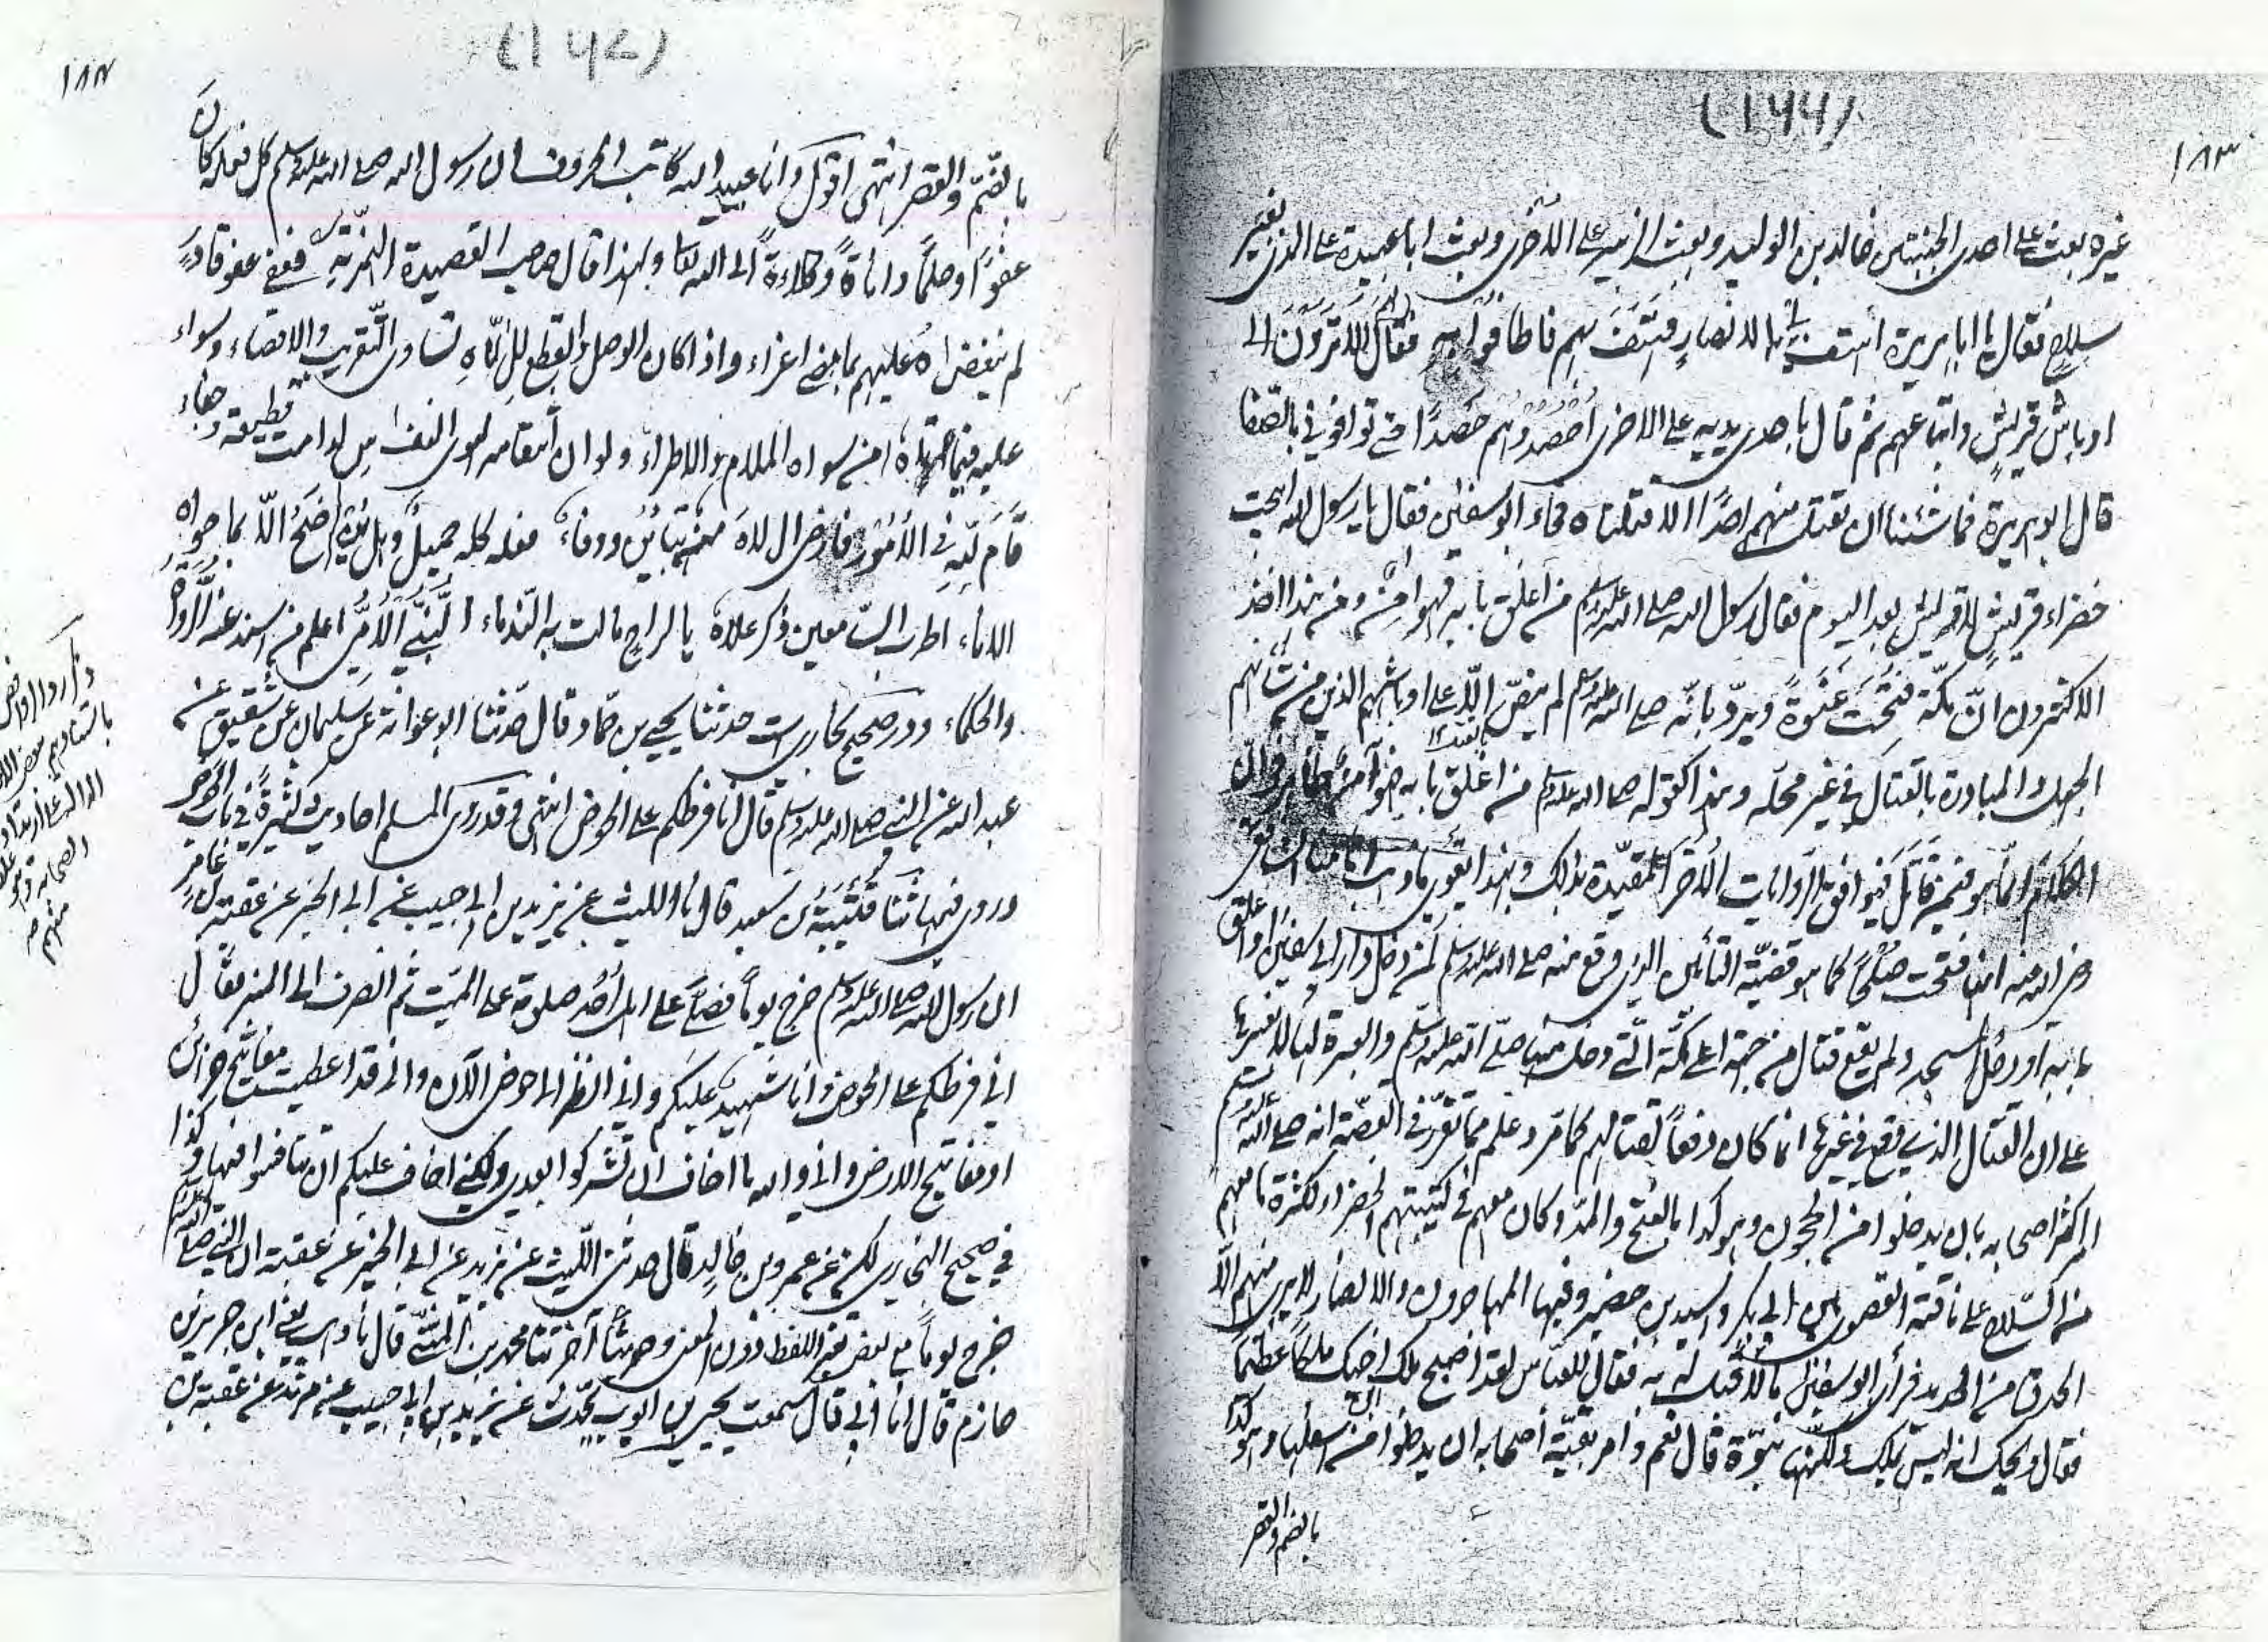 (۱۶۶)
۱۸۳
غيره بعث على احدى المجنبتين خالد بن الوليد وبعث الزبير على الاخرى وبعث ابا عبيدة على الذين بغير
سلاح فقال يا ابا هريرة اهتف لى بالانصار فهتف بهم فاطافوا به فقال لهم الا ترون الى
اوباش قريش واتباعهم ثم قال باحدى يديه على الاخرى احصدوهم حصدًا حتى توافونى بالصفا
قال ابو هريرة فما شئنا ان نقتل منهم احدًا الا قتلناه فجاء ابو سفين فقال يا رسول الله ابيحت
خضراء قريش لا قريش بعد اليوم فقال رسول الله صلى الله عليه وسلم من اغلق بابه فهو امن ومن هذا اخذ
الاكثرون ان مكة فتحت عنوة ويرد بانه صلى الله عليه وسلم لم ينص الا على اوباشهم الذين من شانهم
الجهل والمبادرة بالقتال فى غير محله وهذا كقوله صلى الله عليه وسلم من اغلق بابه فهو آمن ظاهر فى ان
الكلام انما هو فيمن قاتل فيوافق الروايات الأخر المقيدة بذلك وبهذا يقوى ما ذهب
رضى الله عنه انها فتحت صلحًا كما هو قضية التأمين الذى وقع منه صلى الله عليه وسلم لمن دخل دار ابى سفين او اغلق
بابه او دخل المسجد ولم يقع قتال من جهة اعلى مكة التى دخل منها صلى الله عليه وسلم والعبرة بها لا بغيرها
على ان القتال الذى وقع فى غيرها انما كان دفعًا لقتالهم كما مر وعلم مما تقرر فى القصة انه صلى الله عليه وسلم
امر اكثر اصحابه بان يدخلوا من الحجون وهو كدا بالفتح والمد وكان معهم فى كتيبتهم الخضراء لكثرة ما معهم
من السلاح على ناقته القصوى بين ابى بكر واسيد بن حضير وفيها المهاجرون والانصار لا يرى منهم الا
الحدق من الحديد فرأى ابو سفين ما لا قبل له به فقال للعباس لقد اصبح ملك ابن اخيك ملكًا عظيمًا
فقال ويحك انه ليس بملك ولكنها نبوة قال نعم وامر بقية اصحابه ان يدخلوا من اسفلها وهو كدا
بالضم والقصر
(۱۶۷)
۱۸۴
بالضم والقصر انتهى اقول وانا عبيد الله كاتب الحروف ان رسول الله صلى الله عليه وسلم كل فعله كان
عفوًا وحلمًا واناةً وكلاءةً الى الله تعالى ولهذا قال صاحب القصيدة الهمزية فعفى عفو قادر
لم ينغص اه عليهم بما مضى اغراء واذا كان الوصل والقطع لله تساوى التقريب والاقصاء وسواء
عليه فيما اتاه من سواه الملام والاطراء ولو ان انتقامه لهوى النفس لدامت قطيعة وجفاء
قام لله فى الأمور فارضى الله منه تباين ووفاء فعله كله جميل وهل ينضح الا بما حواه
الاناء اطرب السامعين ذكر علاه يا لراح مالت به الندماء النبى الأمى اعلم من اسند عنه الرواة
والحكماء ودر صحيح بخارى ست حدثنا يحيى بن حماد قال حدثنا ابو عوانة عن سليمان عن شقيق عن
عبد الله عن النبى صلى الله عليه وسلم قال انا فرطكم على الحوض انتهى وقد روى المسلم احاديث كثيرة فى باب الحوض
وروى فيها ثنا قتيبة بن سعيد قال نا الليث عن يزيد بن ابى حبيب عن ابى الخير عن عقبة بن عامر
ان رسول الله صلى الله عليه وسلم خرج يوماً فصلى على اهل أحد صلوته على الميت ثم انصرف الى المنبر فقال
انى فرطكم على الحوض وانا شهيد عليكم وانى والله لانظر الى حوضى الآن وانى قد اعطيت مفاتيح خزائن
او مفاتيح الارض وانى والله ما اخاف ان تشركوا بعدى ولكنى اخاف عليكم ان تنافسوا فيها وكذا
فى صحيح البخارى لكن عن عمرو بن خالد قال حدثنى الليث عن يزيد عن ابى الخير عن عقبة ان النبى صلى الله عليه وسلم
خرج يوماً مع بعض تغير اللفظ دون المعنى وحديثًا آخر ثنا محمد بن المثنى قال نا وهب يعنى ابن جرير بن
حازم قال نا ابى قال سمعت يحيى بن ايوب يحدث عن يزيد بن ابى حبيب عن مرثد عن عقبة بن
الصحابة
منهم